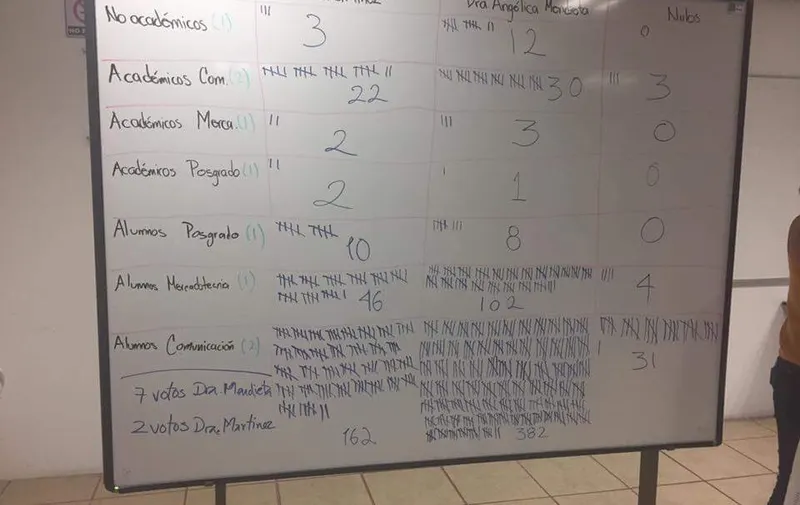 Dra Angélica Mendieta Nulos
No académicos (1) 3 12 0
Académicos Com. (2) 22 30 3
Académicos Merca. (1) 2 3 0
Académicos Posgrado (1) 2 1 0
Alumnos Posgrado (1) 10 8 0
Alumnos Mercadotecnia (1) 46 102 4
Alumnos Comunicación (2) 162 382 31
7 votos Dra. Mendieta
2 votos Dra. Martínez